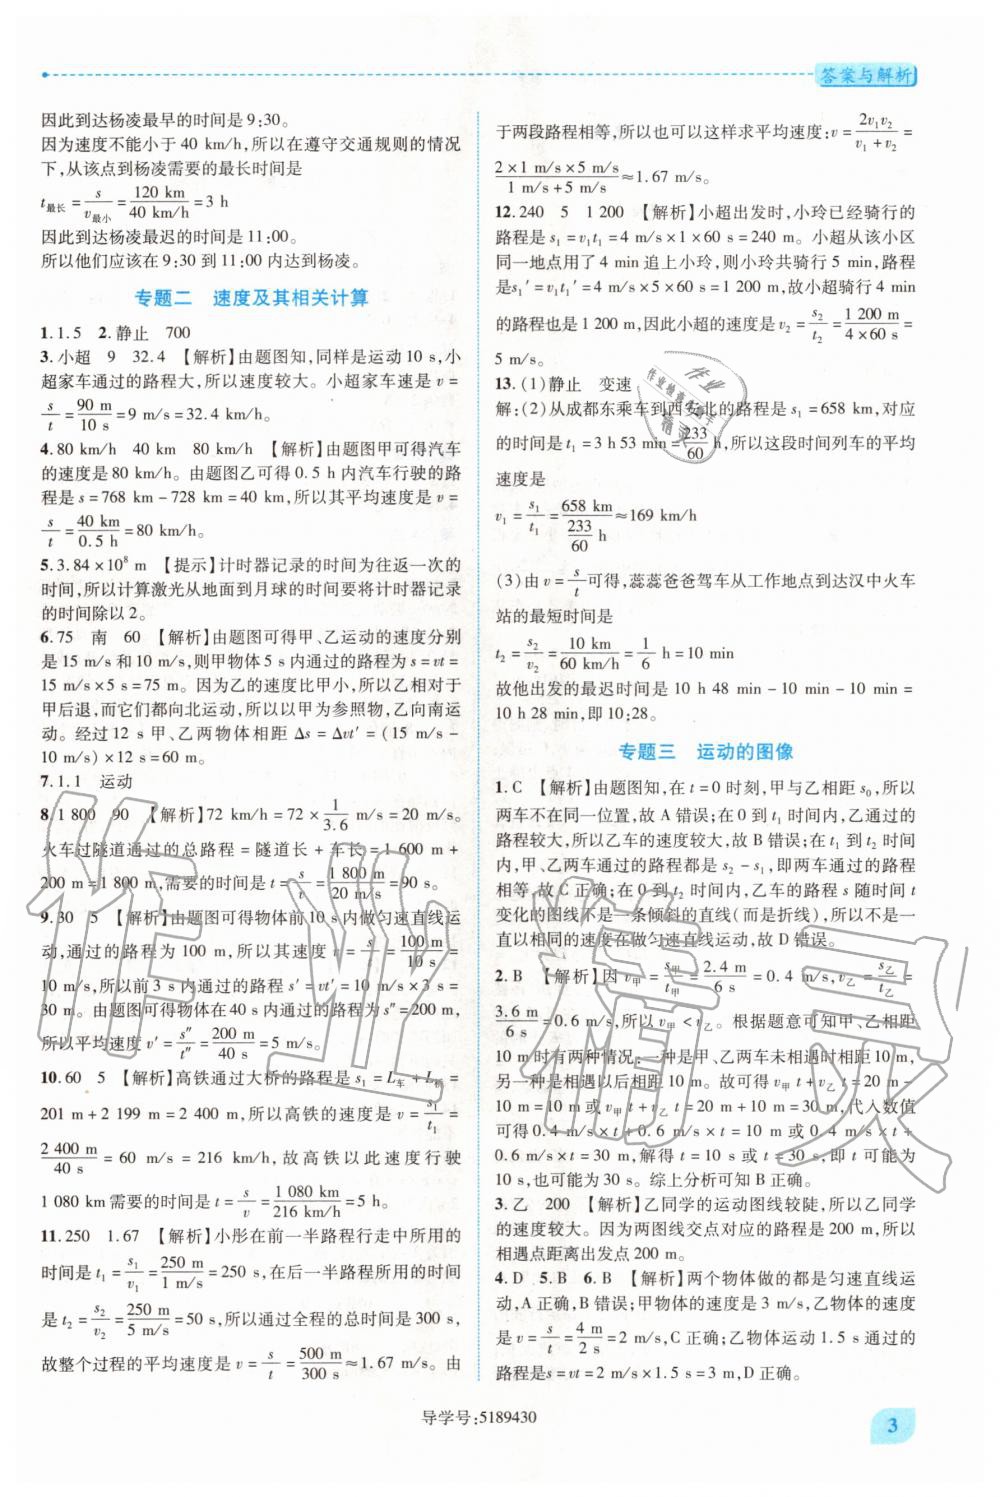 答案与解析
因此到达杨凌最早的时间是 9:30。
因为速度不能小于 40 km/h,所以在遵守交通规则的情况
下,从该点到杨凌需要的最长时间是
t最长 = s/v最小 = 120 km/40 km/h = 3 h
因此到达杨凌最迟的时间是 11:00。
所以他们应该在 9:30 到 11:00 内达到杨凌。
专题二 速度及其相关计算
1.1.5 2.静止 700
3.小超 9 32.4 【解析】由题图知,同样是运动 10 s,小
超家车通过的路程大,所以速度较大。小超家车速是 v =
s/t = 90 m/10 s = 9 m/s = 32.4 km/h。
4.80 km/h 40 km 80 km/h 【解析】由题图甲可得汽车
的速度是 80 km/h。由题图乙可得 0.5 h 内汽车行驶的路
程是 s = 768 km - 728 km = 40 km,所以其平均速度是 v =
s/t = 40 km/0.5 h = 80 km/h。
5.3.84 × 10⁸ m 【提示】计时器记录的时间为往返一次的
时间,所以计算激光从地面到月球的时间要将计时器记录
的时间除以 2。
6.75 南 60 【解析】由题图可得甲、乙运动的速度分别
是 15 m/s 和 10 m/s,则甲物体 5 s 内通过的路程为 s = vt =
15 m/s × 5 s = 75 m。因为乙的速度比甲小,所以乙相对于
甲后退,而它们都向北运动,所以以甲为参照物,乙向南运
动。经过 12 s 甲、乙两物体相距 Δs = Δvt′ = (15 m/s -
10 m/s) × 12 s = 60 m。
7.1.1 运动
8.1 800 90 【解析】72 km/h = 72 × 1/3.6 m/s = 20 m/s。
火车过隧道通过的总路程 = 隧道长 + 车长 = 1 600 m +
200 m = 1 800 m,需要的时间是 t = s/v = 1 800 m/20 m/s = 90 s。
9.30 5 【解析】由题图可得物体前 10 s 内做匀速直线运
动,通过的路程为 100 m,所以其速度是 v = s/t = 100 m/10 s =
10 m/s,所以前 3 s 内通过的路程 s′ = vt′ = 10 m/s × 3 s =
30 m。由题图可得物体在 40 s 内通过的路程 s″ = 200 m,
所以平均速度 v′ = s″/t″ = 200 m/40 s = 5 m/s。
10.60 5 【解析】高铁通过大桥的路程是 s₁ = L车 + L桥 =
201 m + 2 199 m = 2 400 m,所以高铁的速度是 v = s₁/t₁ =
2 400 m/40 s = 60 m/s = 216 km/h,故高铁以此速度行驶
1 080 km 需要的时间是 t = s/v = 1 080 km/216 km/h = 5 h。
11.250 1.67 【解析】小彤在前一半路程行走中所用的
时间是 t₁ = s₁/v₁ = 250 m/1 m/s = 250 s,在后一半路程所用的时间
是 t₂ = s₂/v₂ = 250 m/5 m/s = 50 s,所以通过全程的总时间是 300 s,
故整个过程的平均速度是 v = s/t = 500 m/300 s ≈ 1.67 m/s。由
于两段路程相等,所以也可以这样求平均速度:v = 2v₁v₂/v₁ + v₂ =
2 × 1 m/s × 5 m/s/1 m/s + 5 m/s ≈ 1.67 m/s。
12.240 5 1 200 【解析】小超出发时,小玲已经骑行的
路程是 s₁ = v₁t₁ = 4 m/s × 1 × 60 s = 240 m。小超从该小区
同一地点用了 4 min 追上小玲,则小玲共骑行了 5 min,路程
是 s₁′ = v₁t₁′ = 4 m/s × 5 × 60 s = 1 200 m,故小超骑行
的路程也是 1 200 m,因此小超的速度是 v₂ = s₂/t₂ = 1 200 m/4 × 60 s =
5 m/s。
13.(1)静止 变速
解:(2)从成都东乘车到西安北的路程是 s₁ = 658 km,对应
的时间是 t₁ = 3 h 53 min = 233/60 h,所以这段时间列车的平均
速度是
v₁ = s₁/t₁ = 658 km/(233/60 h) ≈ 169 km/h
(3)由 v = s/t 可得,蕊蕊爸爸驾车从工作地点到达汉中火车
站的最短时间是
t₂ = s₂/v₂ = 10 km/60 km/h = 1/6 h = 10 min
故他出发的最迟时间是 10 h 48 min - 10 min - 10 min =
10 h 28 min,即 10:28。
专题三 运动的图像
1.C 【解析】由题图知,在 t = 0 时刻,甲与乙相距 s₀,所以
两车不在同一位置,故 A 错误;在 0 到 t₁ 时间内,乙通过的
路程较大,所以乙车的速度较大,故 B 错误;在 t₁ 到 t₂ 时间
内,甲、乙两车通过的路程都是 s₂ - s₁,即两车通过的路程
相等,故 C 正确;在 0 到 t₂ 时间内,乙车的路程 s 随时间 t
变化的图线不是一条倾斜的直线(而是折线),所以不是一
直以相同的速度在做匀速直线运动,故 D 错误。
2.B 【解析】因 v甲 = s甲/t甲 = 2.4 m/6 s = 0.4 m/s,v乙 = s乙/t乙 =
3.6 m/6 s = 0.6 m/s,所以 v甲 < v乙。根据题意可知甲、乙相距
10 m 时有两种情况:一种是甲、乙两车未相遇时相距 10 m,
另一种是相遇以后相距 10 m。故可得 v甲 t + v乙 t = 20 m -
10 m = 10 m 或 v甲 t + v乙 t = 20 m + 10 m = 30 m,代入数值
可得 0.4 m/s × t + 0.6 m/s × t = 10 m 或 0.4 m/s × t +
0.6 m/s × t = 30 m,解得 t = 10 s 或 t = 30 s,即可能为
10 s,也可能为 30 s。综上分析可知 B 正确。
3.乙 200 【解析】乙同学的运动图线较陡,所以乙同学
的速度较大。因为两图线交点对应的路程是 200 m,所以
相遇点距离出发点 200 m。
4.D 5.B 6.B 【解析】两个物体做的都是匀速直线运
动,A 正确,B 错误;甲物体的速度是 3 m/s,乙物体的速度
是 v = s/t = 4 m/2 s = 2 m/s,C 正确;乙物体运动 1.5 s 通过的
路程是 s = vt = 2 m/s × 1.5 s = 3 m,D 正确。
导学号:5189430
3
作业精灵